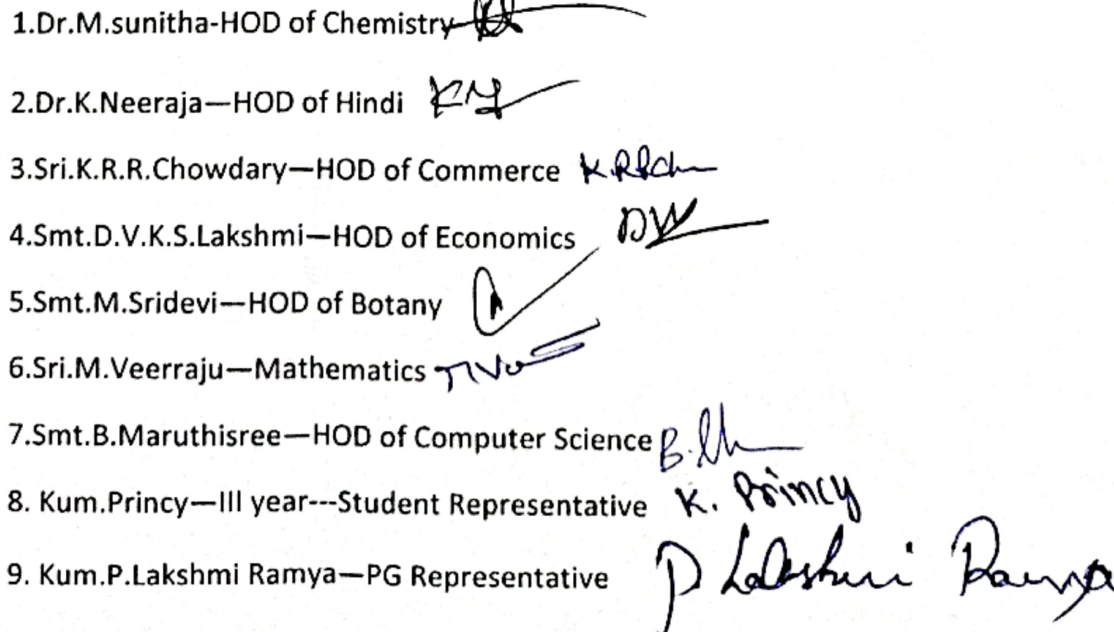 1.Dr.M.sunitha-HOD of Chemistry
2.Dr.K.Neeraja—HOD of Hindi
3.Sri.K.R.R.Chowdary—HOD of Commerce K.RRCh
4.Smt.D.V.K.S.Lakshmi—HOD of Economics
5.Smt.M.Sridevi—HOD of Botany
6.Sri.M.Veerraju—Mathematics
7.Smt.B.Maruthisree—HOD of Computer Science
8. Kum.Princy—III year---Student Representative K. Princy
9. Kum.P.Lakshmi Ramya—PG Representative P Lakshmi Ramya